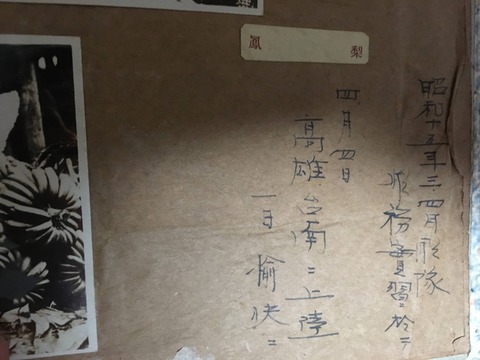 鳳梨
昭和十五年三.四月 隊
務實習 於ニ
四月四日
高雄 台南ニ上陸
一日 愉快ニ